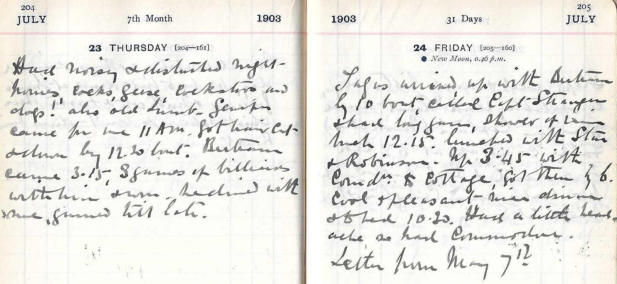 204
JULY
7th Month
1903
23 THURSDAY [204—161]
Had noisy & disturbed night-
horses, cocks, geese, cockatoos and
dogs! also old
came for me 11 AM. Got hair cut
& down by 12.30 boat. Bertram
came 3.15, 3 games of billiards
with him & won. he dined with
me, gamed till late.
1903
31 Days
205
JULY
24 FRIDAY [205—160]
New Moon, 0.46 p.m.
arrived up with Bertram
by 10 boat, called Capt
& had big game, shower of rain
12.15. lunched with
& Robinson. Up 3.45 with
Comdr. & Cottage, got there by 6.
Cool & pleasant nice dinner
& bed 10.30. Had a little head-
ache so had Commodore.
Letter from May 7th